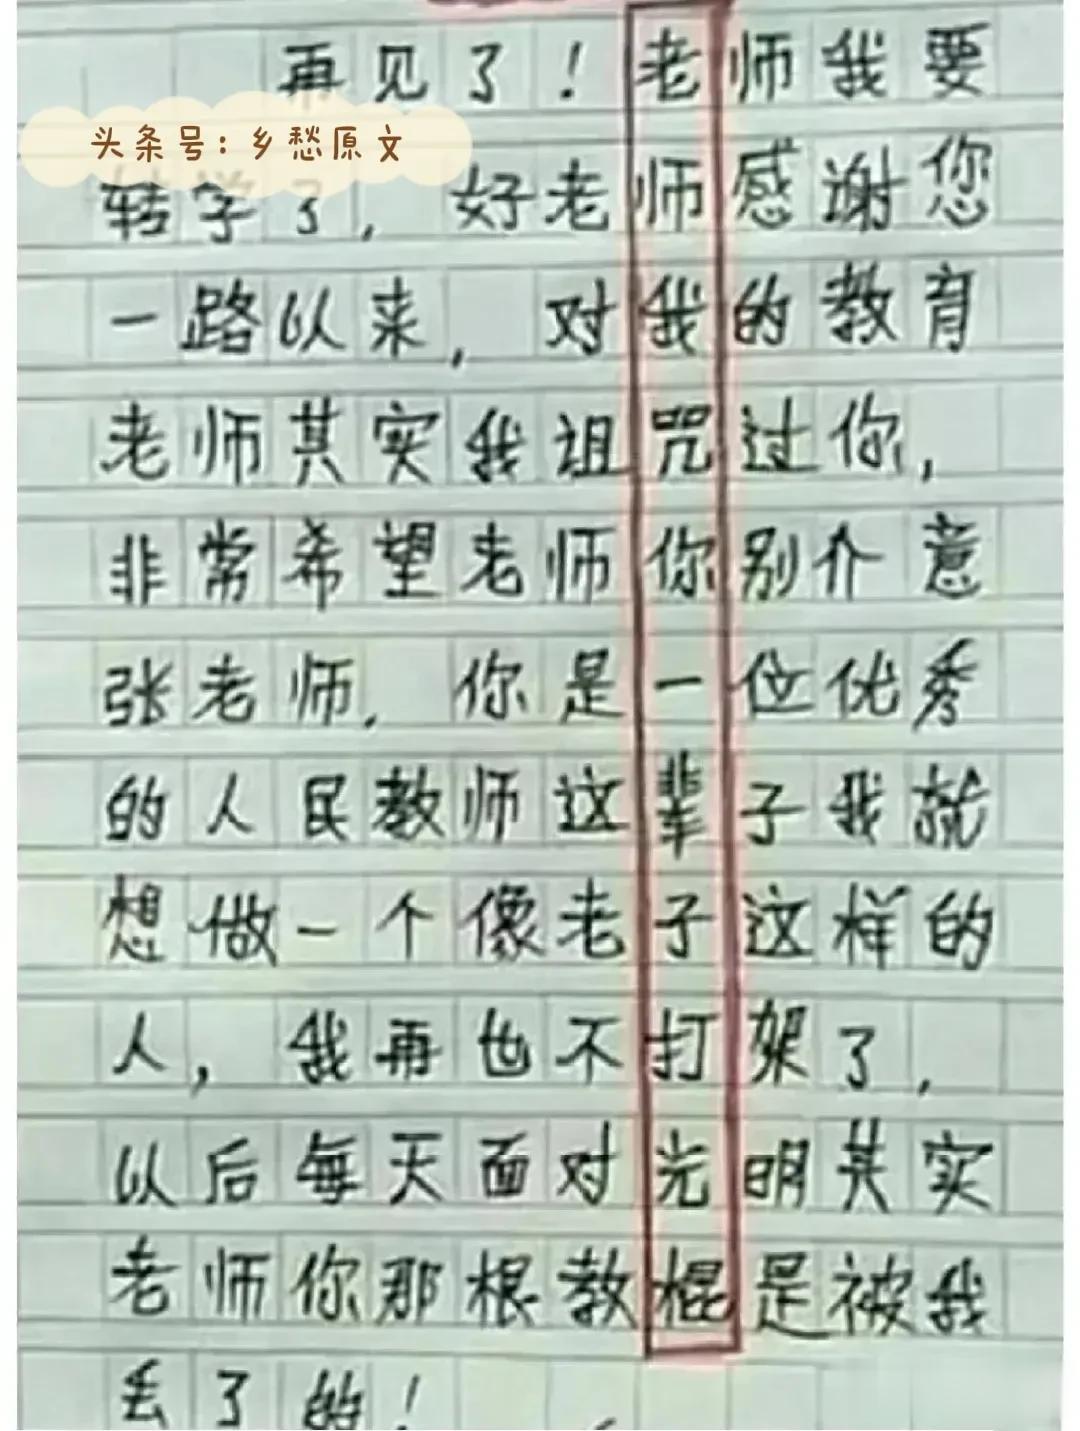 再见了！老师我要
头条号：乡愁原文
转学了，好老师感谢您
一路以来，对我的教育
老师其实我诅咒过你，
非常希望老师你别介意
张老师，你是一位优秀
的人民教师这辈子我就
想做一个像老子这样的
人，我再也不打架了，
以后每天面对光明其实
老师你那根教棍是被我
丢了的！